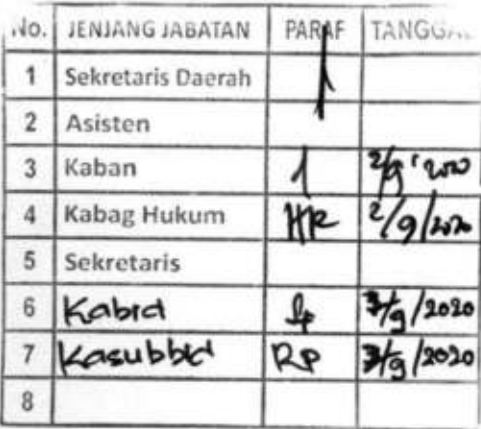 No. JENJANG JABATAN PARAF TANGGAL
1 Sekretaris Daerah
2 Asisten
3 Kaban 2/9' 2020
4 Kabag Hukum HR 2/9/2020
5 Sekretaris
6 Kabid 3/9/2020
7 Kasubbid RP 3/9/2020
8